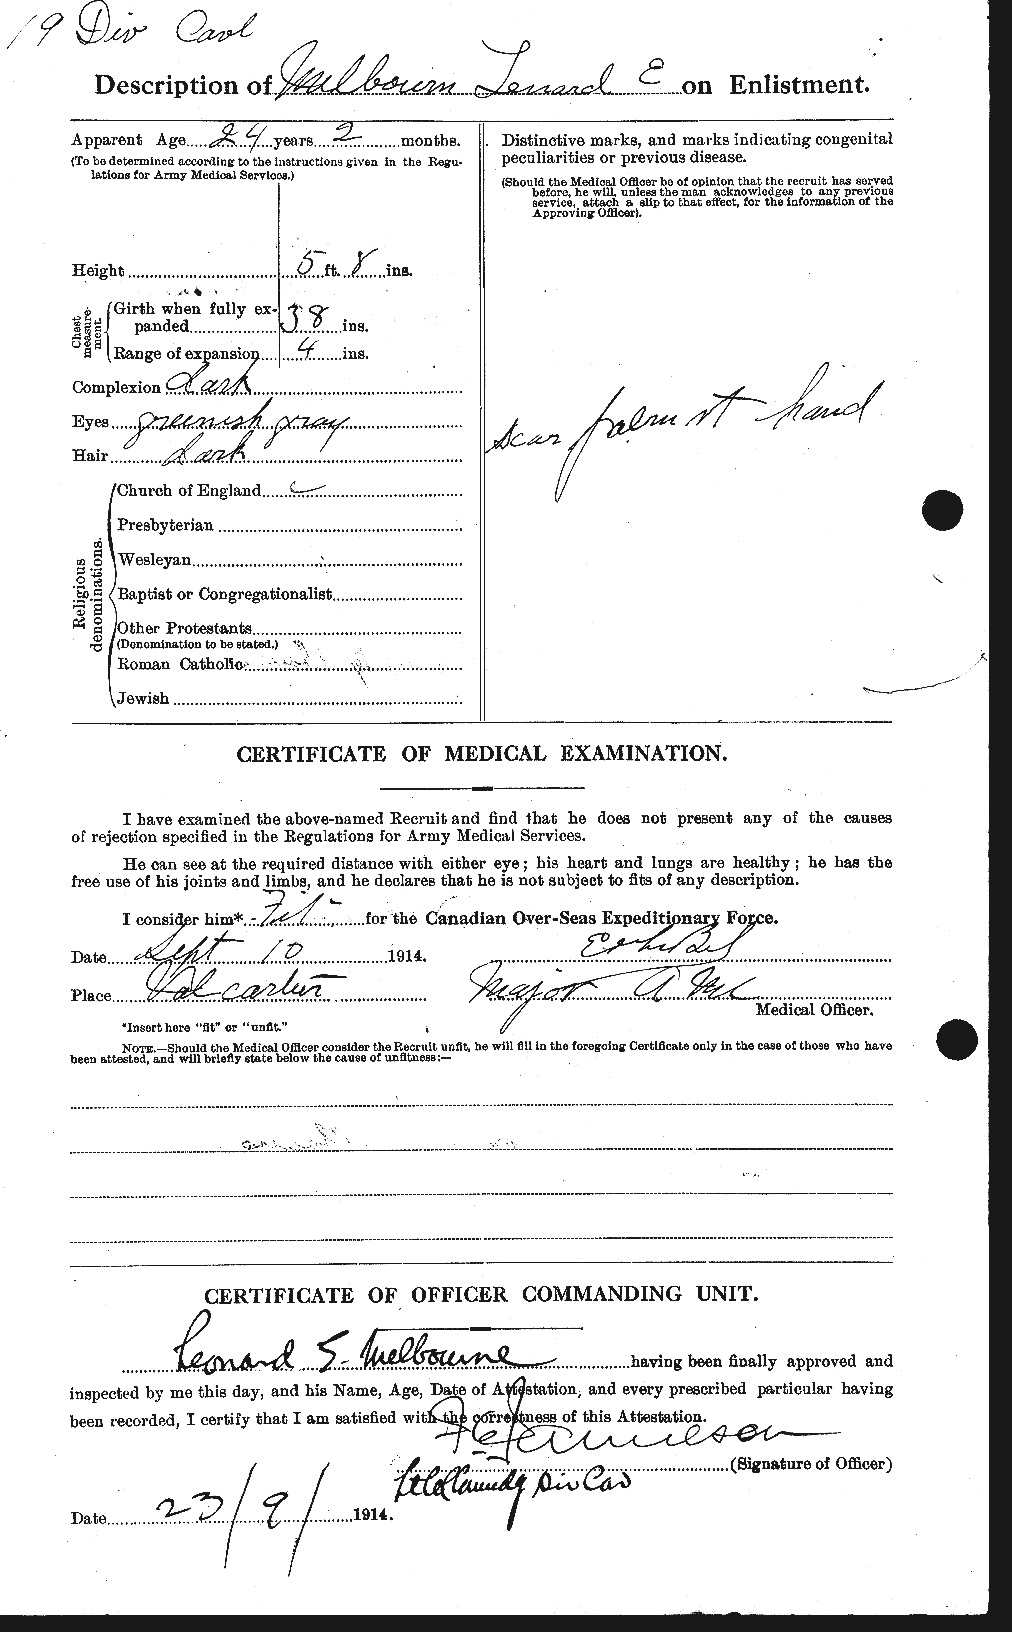 19 Div Cavl
Description of Melbourn Lenard E on Enlistment.
Apparent Age 24 years 2 months.
(To be determined according to the instructions given in the Regu-
lations for Army Medical Services.)
Height 5 ft. 8 ins.
Chest measure-ment.
Girth when fully ex-
panded 38 ins.
Range of expansion 4 ins.
Complexion dark
Eyes greenish gray
Hair dark
Religious denominations.
Church of England
Presbyterian
Wesleyan
Baptist or Congregationalist
Other Protestants
(Denomination to be stated.)
Roman Catholic
Jewish
Distinctive marks, and marks indicating congenital
peculiarities or previous disease.
(Should the Medical Officer be of opinion that the recruit has served
before, he will, unless the man acknowledges to any previous
service, attach a slip to that effect, for the information of the
Approving Officer).
scar palm rt hand
CERTIFICATE OF MEDICAL EXAMINATION.
I have examined the above-named Recruit and find that he does not present any of the causes
of rejection specified in the Regulations for Army Medical Services.
He can see at the required distance with either eye; his heart and lungs are healthy; he has the
free use of his joints and limbs, and he declares that he is not subject to fits of any description.
I consider him* Fit for the Canadian Over-Seas Expeditionary Force.
Date Sept 10 1914.
Place Valcartier Major AMC
Medical Officer.
*Insert here "fit" or "unfit."
NOTE.—Should the Medical Officer consider the Recruit unfit, he will fill in the foregoing Certificate only in the case of those who have
been attested, and will briefly state below the cause of unfitness:—
CERTIFICATE OF OFFICER COMMANDING UNIT.
Leonard S. Melbourne having been finally approved and
inspected by me this day, and his Name, Age, Date of Attestation, and every prescribed particular having
been recorded, I certify that I am satisfied with the correctness of this Attestation.
Jamieson
(Signature of Officer)
Div Cav
Date 23/9/ 1914.